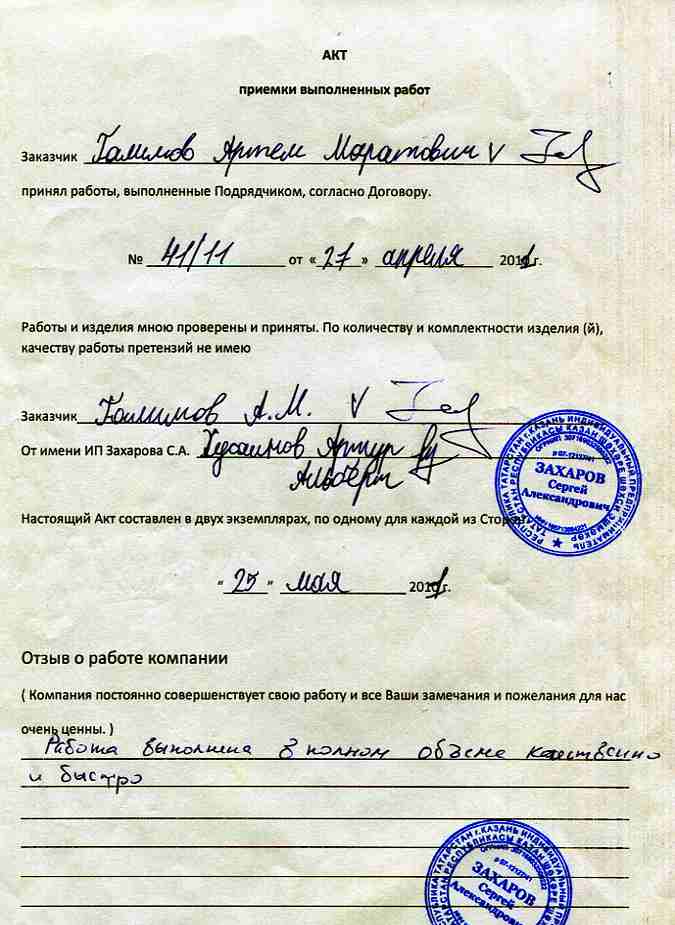 АКТ
приемки выполненных работ
Заказчик Галимов Артем Маратович V
принял работы, выполненные Подрядчиком, согласно Договору.
№ 41/11 от «27» апреля 2011 г.
Работы и изделия мною проверены и приняты. По количеству и комплектности изделия (й),
качеству работы претензий не имею
Заказчик Галимов А.М. V
От имени ИП Захарова С.А. Хусаинов Артур
Альберт
РЕСПУБЛИКА ТАТАРСТАН г.КАЗАНЬ ИНДИВИДУАЛЬНЫЙ ПРЕДПРИНИМАТЕЛЬ
ТАТАРСТАН РЕСПУБЛИКАСЫ КАЗАН ШӘҺӘРЕ ШӘХСИ ЭШМӘКӘР
ЗАХАРОВ
Сергей
Александрович
Настоящий Акт составлен в двух экземплярах, по одному для каждой из Сторон
"25" мая 2011 г.
Отзыв о работе компании
( Компания постоянно совершенствует свою работу и все Ваши замечания и пожелания для нас
очень ценны. )
Работа выполнена в полном объеме качественно
и быстро
ТАТАРСТАН г.КАЗАНЬ ИНДИВИДУАЛЬНЫЙ
ЗАХАРОВ
Сергей
Александрович